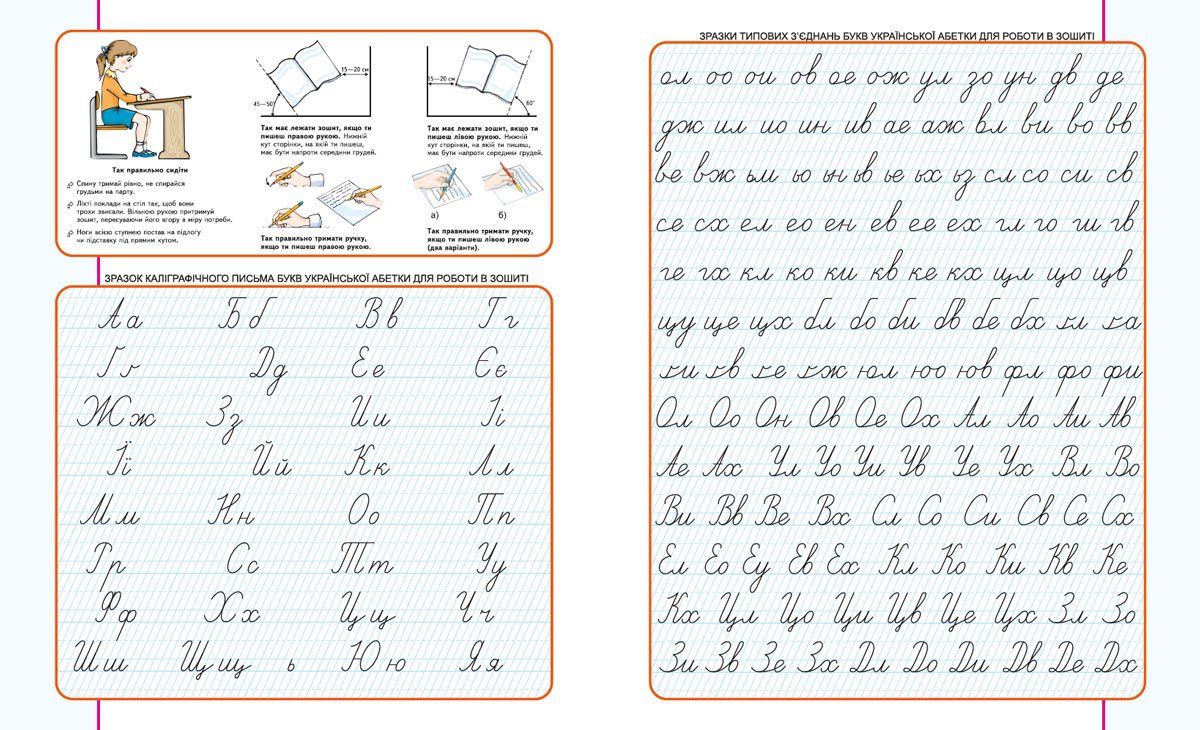 Так правильно сидіти
Спину тримай рівно, не спирайся
грудьми на парту.
Лікті поклади на стіл так, щоб вони
трохи звисали. Вільною рукою притримуй
зошит, пересуваючи його вгору в міру потреби.
Ноги всією ступнею постав на підлогу
чи підставку під прямим кутом.
15—20 см
45—50°
Так має лежати зошит, якщо ти
пишеш правою рукою. Нижній
кут сторінки, на якій ти пишеш,
має бути напроти середини грудей.
Так правильно тримати ручку,
якщо ти пишеш правою рукою.
15—20 см
60°
Так має лежати зошит, якщо ти
пишеш лівою рукою. Нижній
кут сторінки, на якій ти пишеш,
має бути напроти середини грудей.
а) б)
Так правильно тримати ручку,
якщо ти пишеш лівою рукою
(два варіанти).
ЗРАЗОК КАЛІГРАФІЧНОГО ПИСЬМА БУКВ УКРАЇНСЬКОЇ АБЕТКИ ДЛЯ РОБОТИ В ЗОШИТІ
Аа Бб Вв Гг
Ґґ Дд Ее Єє
Жж Зз Ии Іі
Її Йй Кк Лл
Мм Нн Оо Пп
Рр Сс Тт Уу
Фф Хх Цц Чч
Шш Щщ ь Юю Яя
ЗРАЗКИ ТИПОВИХ З'ЄДНАНЬ БУКВ УКРАЇНСЬКОЇ АБЕТКИ ДЛЯ РОБОТИ В ЗОШИТІ
ол оо ои ов ое ож ул зо ун дв де
дж ил ио ин ив ае аж вл ви во вв
ве вж ьм ьо ьн ьв ье ьх ьз сл со си св
се сх ел ео ен ев ее ех гл го ги гв
ге гх кл ко ки кв ке кх щл що цв
щу ще цх бл бо би бв бе бх ґл ґа
ґи ґв ґе ґж юл юо юв фл фо фи
Ол Оо Он Ов Ое Ох Ал Ао Аи Ав
Ае Ах Ул Уо Уи Ув Уе Ух Вл Во
Ви Вв Ве Вх Сл Со Си Св Се Сх
Ел Ео Еу Ев Ех Кл Ко Ки Кв Ке
Кх Цл Цо Ци Цв Це Цх Зл Зо
Зи Зв Зе Зх Дл До Ди Дв Де Дх